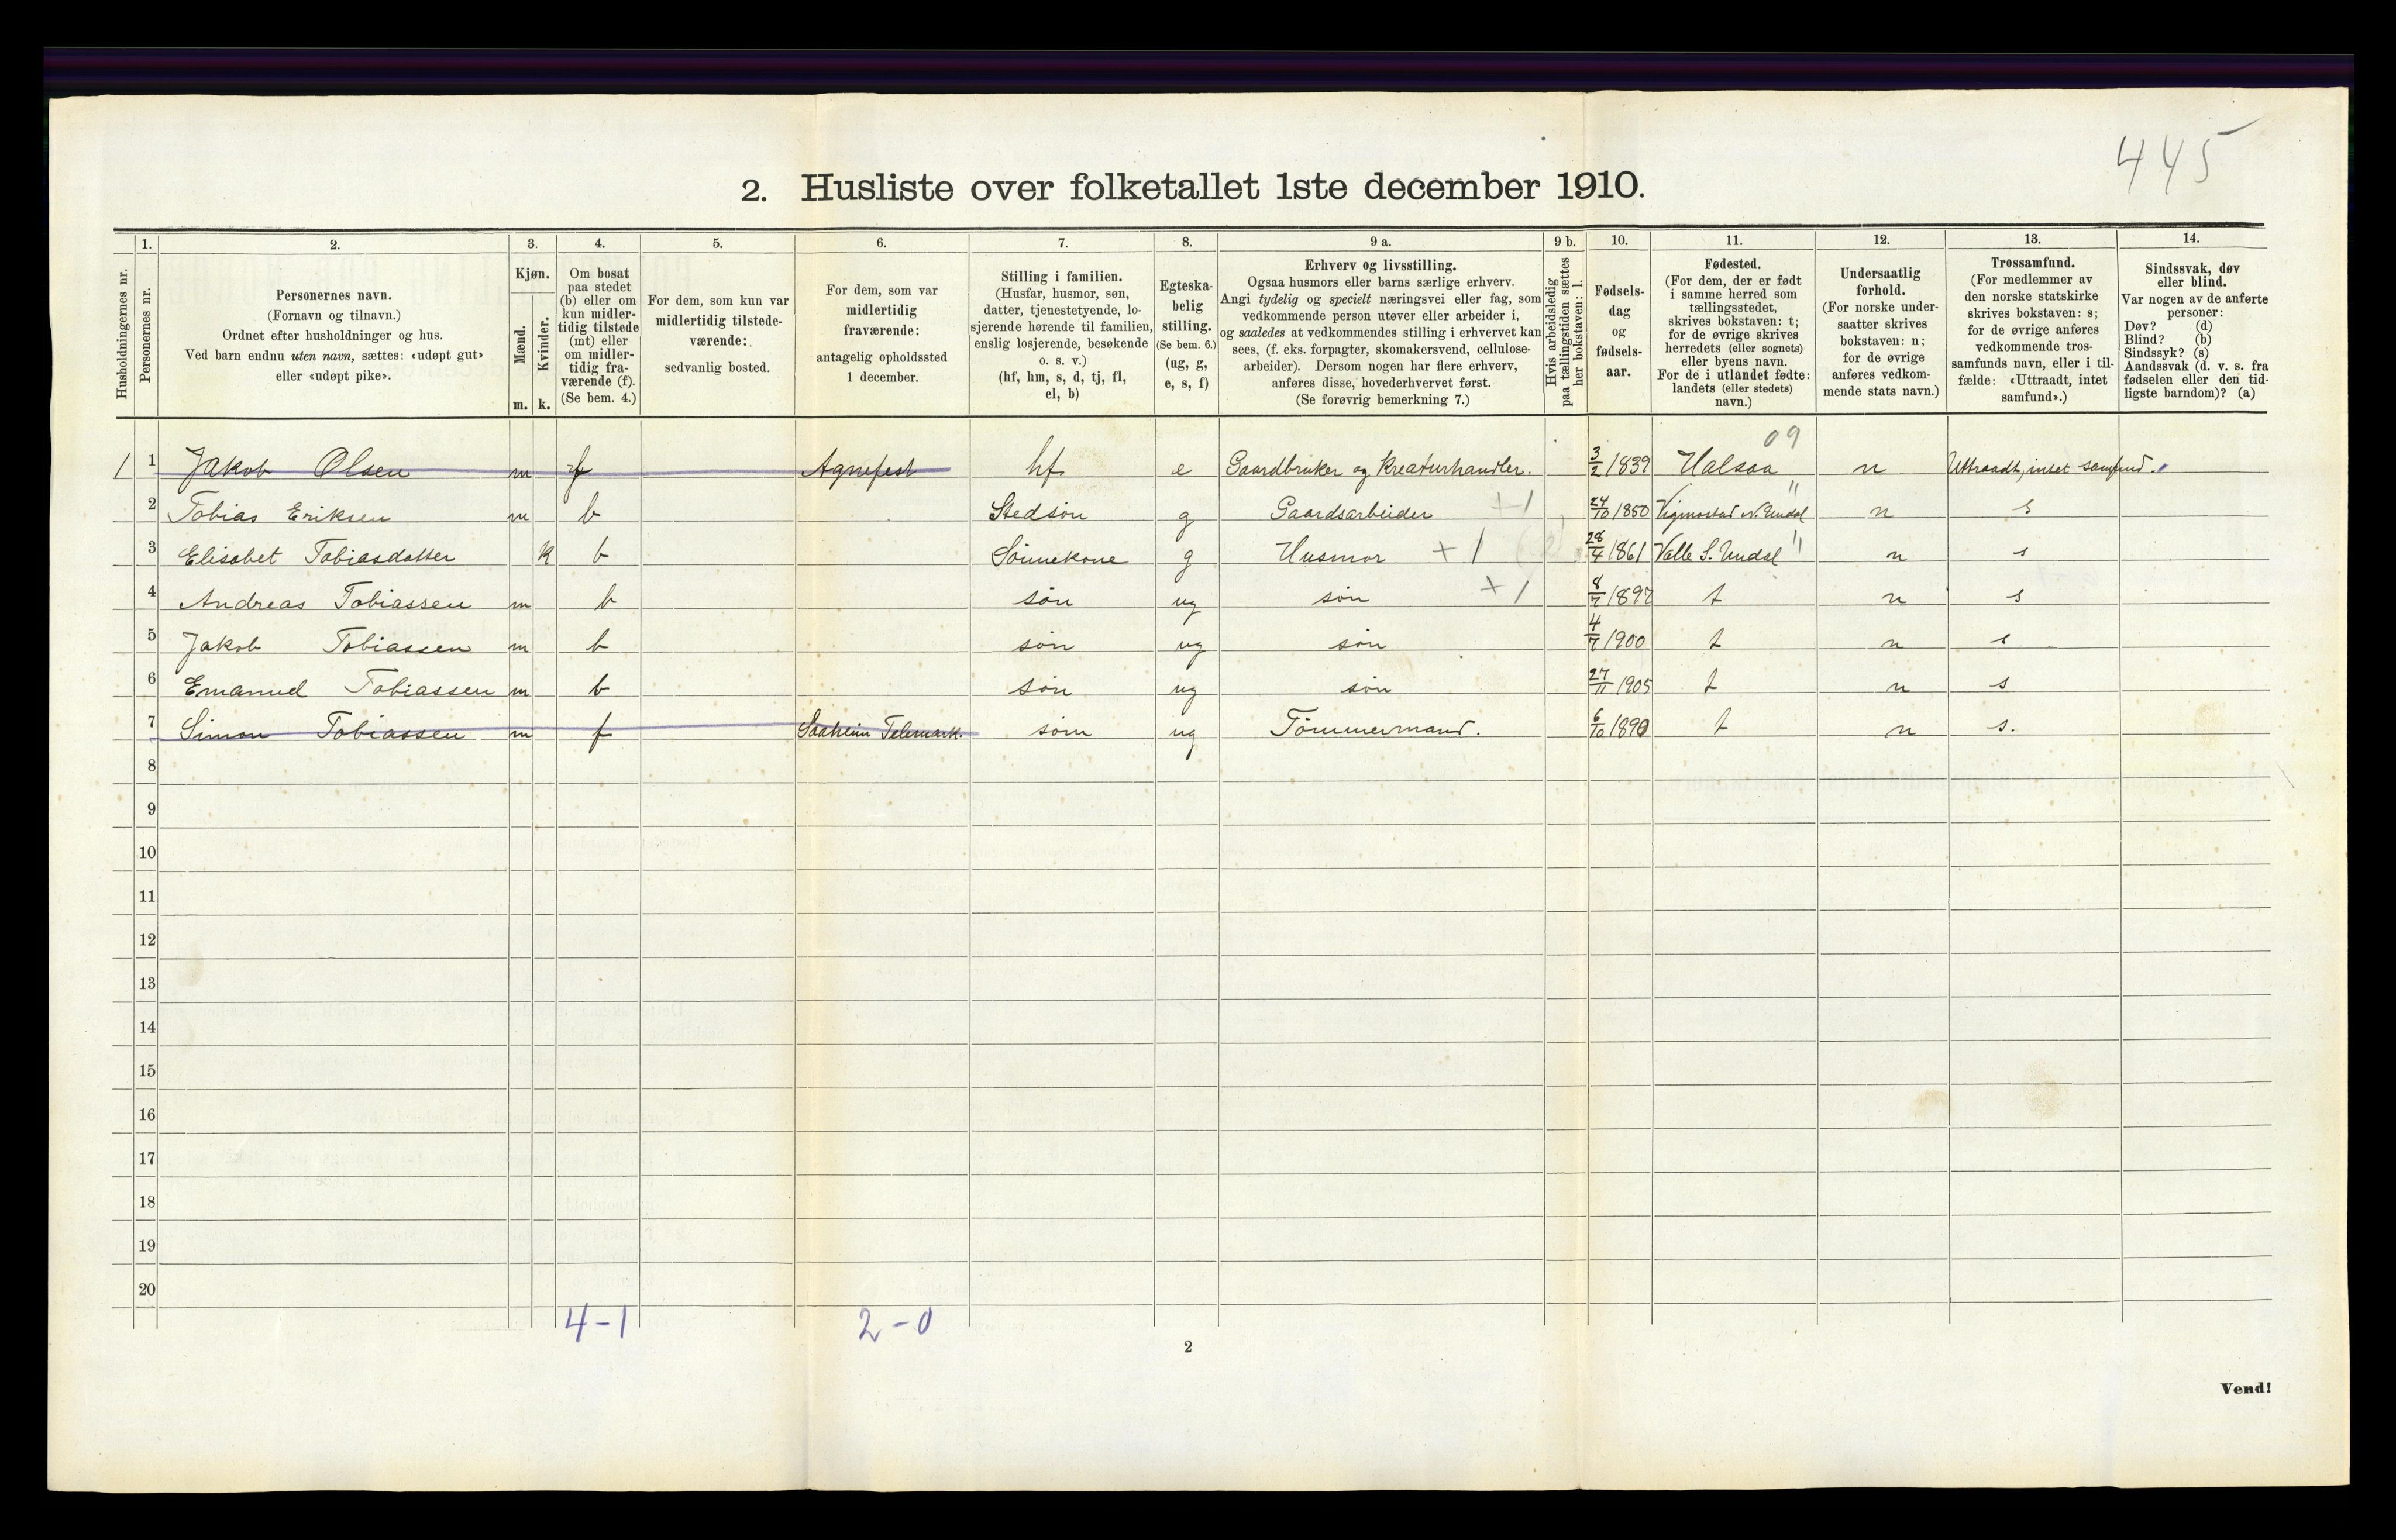 445
2. Husliste over folketallet 1ste december 1910.
Husholdningernes nr.
1.
Personernes nr.
2.
Personernes navn.
(Fornavn og tilnavn.)
Ordnet efter husholdninger og hus.
Ved barn endnu uten navn, sættes: «udøpt gut»
eller «udøpt pike».
3.
Kjøn.
Mænd.
Kvinder.
m. k.
4.
Om bosat
paa stedet
(b) eller om
kun midler-
tidig tilstede
(mt) eller
om midler-
tidig fra-
værende (f).
(Se bem. 4.)
5.
For dem, som kun var
midlertidig tilstede-
værende:
sedvanlig bosted.
6.
For dem, som var
midlertidig
fraværende:
antagelig opholdssted
1 december.
7.
Stilling i familien.
(Husfar, husmor, søn,
datter, tjenestetyende, lo-
sjerende hørende til familien,
enslig losjerende, besøkende
o. s. v.)
(hf, hm, s, d, tj, fl,
el, b)
8.
Egteska-
belig
stilling.
(Se bem. 6.)
(ug, g,
e, s, f)
9 a.
Erhverv og livsstilling.
Ogsaa husmors eller barns særlige erhverv.
Angi tydelig og specielt næringsvei eller fag, som
vedkommende person utøver eller arbeider i,
og saaledes at vedkommendes stilling i erhvervet kan
sees, (f. eks. forpagter, skomakersvend, cellulose-
arbeider). Dersom nogen har flere erhverv,
anføres disse, hovederhvervet først.
(Se forøvrig bemerkning 7.)
9 b.
Hvis arbeidsledig
paa tællingstiden sættes
her bokstaven: l.
10.
Fødsels-
dag
og
fødsels-
aar.
11.
Fødested.
(For dem, der er født
i samme herred som
tællingsstedet,
skrives bokstaven: t;
for de øvrige skrives
herredets (eller sognets)
eller byens navn.
For de i utlandet fødte:
landets (eller stedets)
navn.)
12.
Undersaatlig
forhold.
(For norske under-
saatter skrives
bokstaven: n;
for de øvrige
anføres vedkom-
mende stats navn.)
13.
Trossamfund.
(For medlemmer av
den norske statskirke
skrives bokstaven: s;
for de øvrige anføres
vedkommende tros-
samfunds navn, eller i til-
fælde: «Uttraadt, intet
samfund».)
14.
Sindssvak, døv
eller blind.
Var nogen av de anførte
personer:
Døv? (d)
Blind? (b)
Sindssyk? (s)
Aandssvak (d. v. s. fra
fødselen eller den tid-
ligste barndom)? (a)
09
1 1 Jakob Olsen m f Agnefest hf e Gaardbruker og Kreaturhandler. 3/2 1839 Halsaa n Uttraadt, intet samfund.
2 Tobias Eriksen m b Stedsøn g Gaardsarbeider +1 24/10 1850 Vigmostad N. Undal " n s
3 Elisabet Tobiasdatter k b Sønnekone g Husmor +1 28/4 1861 Valle S. Undal " n s
4 Andreas Tobiassen m b søn ug søn +1 8/7 1897 t n s
5 Jakob Tobiassen m b søn ug søn 4/7 1900 t n s
6 Emanuel Tobiassen m b søn ug søn 27/11 1905 t n s
7 Simon Tobiassen m f Saaheim Telemark. søn ug Tømmermand. 6/10 1890 t n s.
8
9
10
11
12
13
14
15
16
17
18
19
20
4-1 2-0
2
Vend!